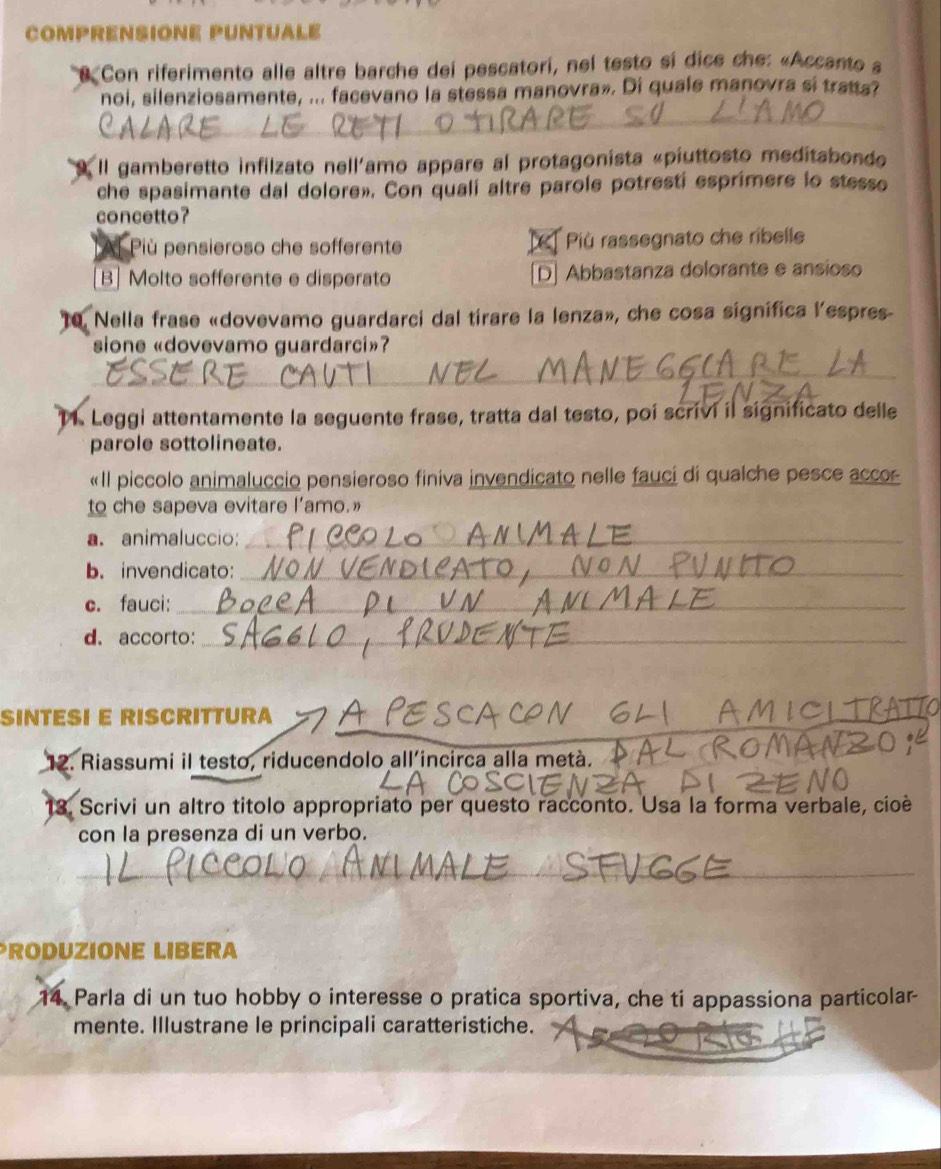 COMPRENSIONE PUNTUALE
8. Con riferimento alle altre barche dei pescatori, nel testo si dice che: «Accanto a
noi, silenziosamente, ... facevano la stessa manovra». Di quale manovra si tratta?
CALARE LE RETI O TIRARE SU L'AMO
9. Il gamberetto infilzato nell'amo appare al protagonista «piuttosto meditabondo
che spasimante dal dolore». Con quali altre parole potresti esprimere lo stesso
concetto?
A Più pensieroso che sofferente
C Più rassegnato che ribelle
B Molto sofferente e disperato
D Abbastanza dolorante e ansioso
10. Nella frase «dovevamo guardarci dal tirare la lenza», che cosa significa l'espres-
sione «dovevamo guardarci»?
ESSERE CAUTI NEL MANEGGIARE LA
LENZA
11. Leggi attentamente la seguente frase, tratta dal testo, poi scrivi il significato delle
parole sottolineate.
«Il piccolo animaluccio pensieroso finiva invendicato nelle fauci di qualche pesce accor-
to che sapeva evitare l'amo.»
a. animaluccio: PICCOLO ANIMALE
b. invendicato: NON VENDICATO, NON PUNITO
c. fauci: BOCCA DI UN ANIMALE
d. accorto: SAGGIO, PRUDENTE
SINTESI E RISCRITTURA A PESCA CON GLI AMICI TRATTO
12. Riassumi il testo, riducendolo all'incirca alla metà. DAL ROMANZO:
LA COSCIENZA DI ZENO
13. Scrivi un altro titolo appropriato per questo racconto. Usa la forma verbale, cioè
con la presenza di un verbo.
IL PICCOLO ANIMALE SFUGGE
PRODUZIONE LIBERA
14. Parla di un tuo hobby o interesse o pratica sportiva, che ti appassiona particolar-
mente. Illustrane le principali caratteristiche.